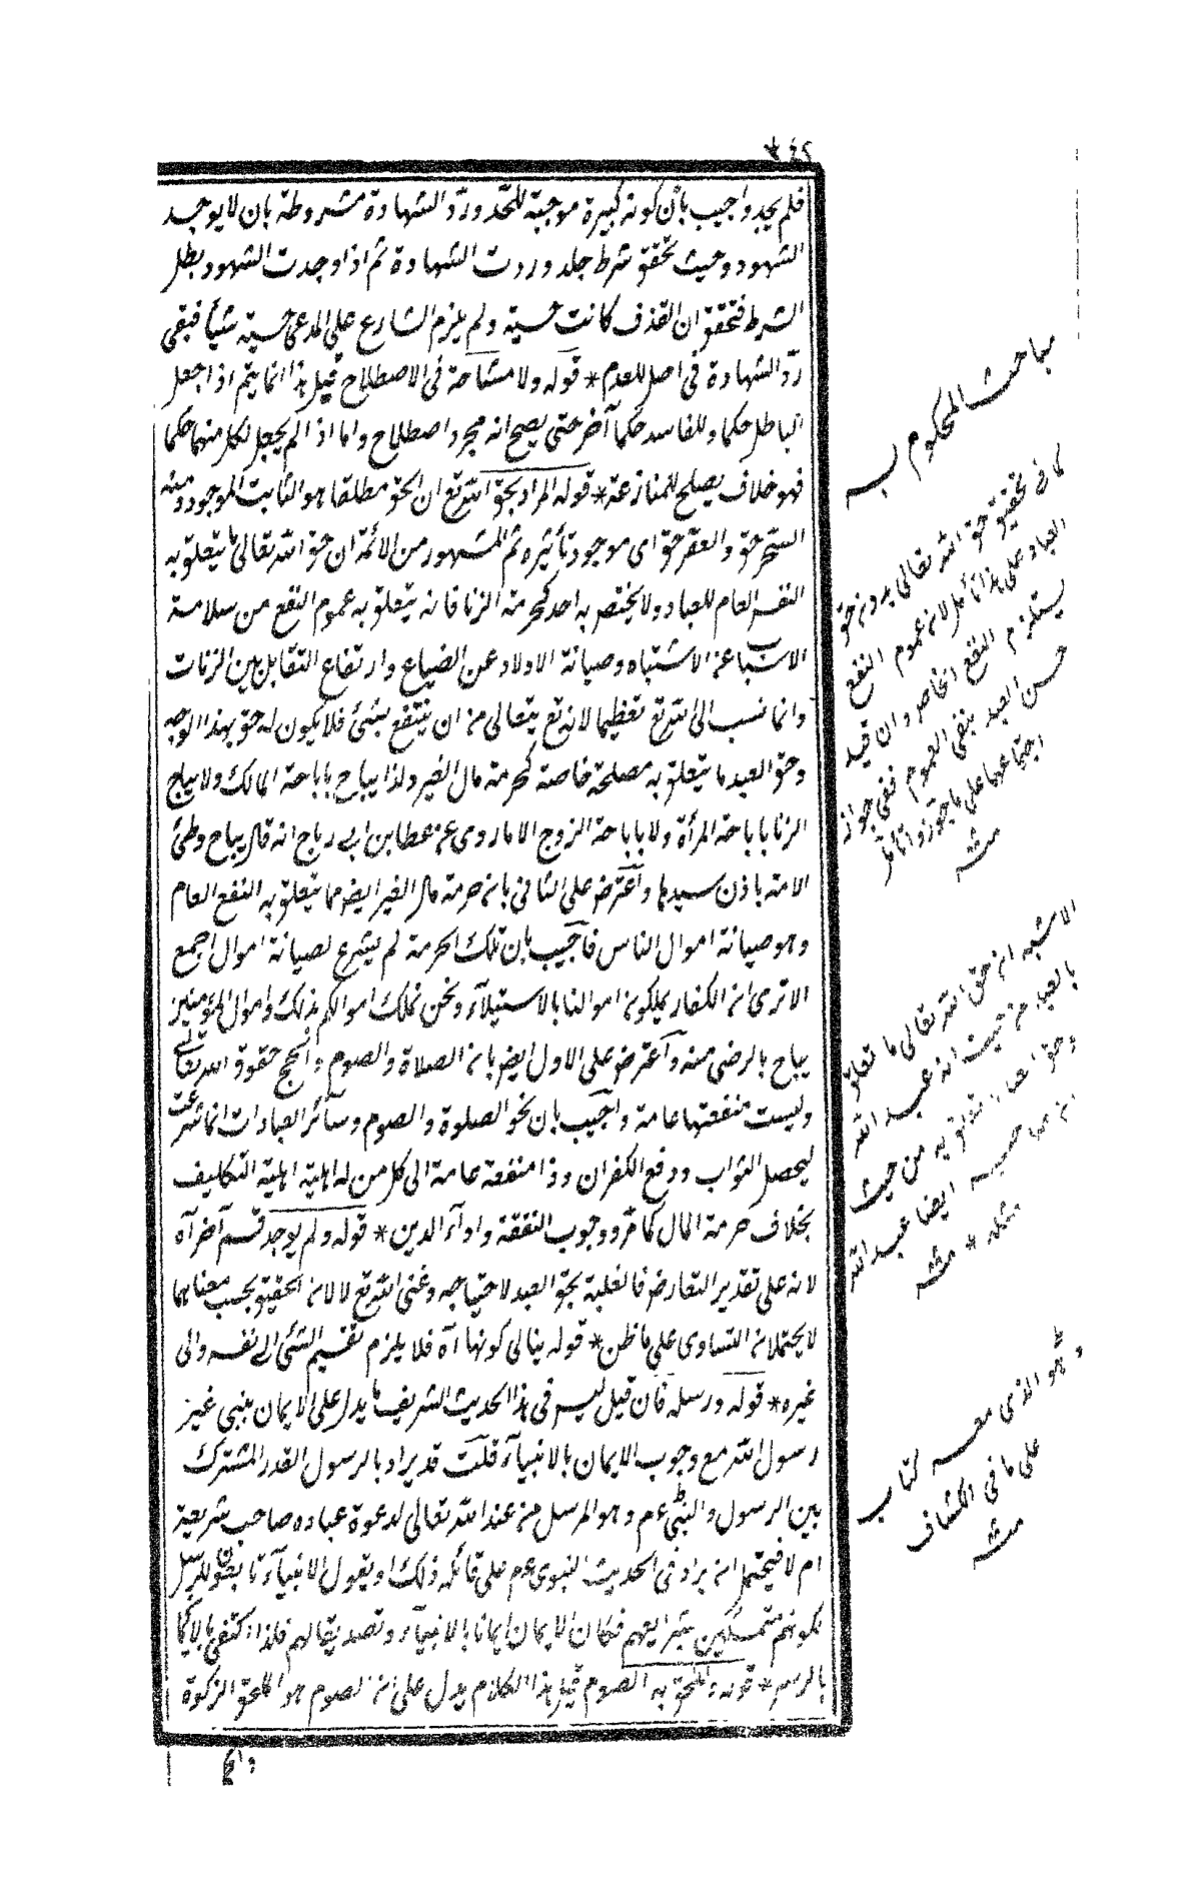 فلم يجد واجيب بأن كونه كبيرة موجبة للحد وردّ الشهادة مشروطة بان لا يوجد
الشهود وحيث تحقق شرط جلد وردت الشهادة ثم اذا وجدت الشهود بطل
الشرط فتحقق ان القذف كانت حسبة ولم يلزم الشارع على المدعى حسبة شيئا فبقى
ردّ الشهادة فى اصل العدم * قوله ولا مشاحة فى الاصطلاح قيل هذا انما يتم اذا جعل
الباطل حكما وللفاسد حكما آخر حتى يصح انه مجرد اصطلاح واما اذا لم يجعل لكل منهما حكما
فهو خلاف يصلح للمنازعة * قوله المراد بحق الله تع ان الحق مطلقا هو الثابت الموجود ومنه
السحر حق والعقر حق اى موجود تأثيره ثم المشهور من الائمة ان حق الله تعالى ما يتعلق به
النفع العام للعباد ولا يختص به احد كحرمة الزنا فانه يتعلق به عموم النفع من سلامة
الانساب عن الاشتباه وصيانة الاولاد عن الضياع وارتفاع التقابل بين الزناة
وانما نسب الى الله تع تعظيما لانه تع يتعالى من ان ينتفع بشئ فلا يكون له حق بهذا الوجه
وحق العبد ما يتعلق به مصلحة خاصة كحرمة مال الغير ولذا يباح باباحة المالك ولا يباح
الزنا باباحة المرأة ولا باباحة الزوج الا ما روى عن عطا بن ابى رباح انه قال يباح وطئ
الامة باذن سيدها واعترض على الثانى بان حرمة مال الغير ايض مما يتعلق به النفع العام
وهو صيانة اموال الناس فاجيب بان تلك الحرمة لم يشرع لصيانة اموال اجمع
الا ترى ان الكفار يملكون اموالنا بالاستيلآء ونحن نملك اموالكم بذلك واموال المؤمنين
يباح بالرضى منه واعترض على الاول ايض بان الصلاة والصوم والحج حقوق الله تعالى
وليست منفعتها عامة واجيب بان نحو الصلوة والصوم وسآئر العبادات انما شرعت
ليحصل الثواب ودفع الكفران وذا منفعة عامة الى كل من له اهلية التكليف
بخلاف حرمة المال كما مرّ ووجوب النفقة واداء الدين * قوله ولم يوجد قسم آخر آه
لانه على تقدير التعارض فالغلبة بحق العبد لاحتياجه وغنى الله تع لا لان الحقيق بحسب معناهما
لا يحتملان التساوى على ما ظن * قوله ينافى كونها آه فلا يلزم تقسيم الشئ الى نفسه والى
غيره * قوله ورسله فان قيل ليس فى هذا الحديث الشريف ما يدل على الايمان بنبى غير
رسول الله مع وجوب الايمان بالانبيآء قلت قد يراد بالرسول القدر المشترك
بين الرسول والنبى عم وهو المرسل من عند الله تعالى لدعوة عباده صاحب شريعة
ام لا فيحتمل ان يراد فى الحديث النبوى عم على قائله ذلك او يقول الانبيآء تابعون للرسل
لكونهم متمسكين بشرايعهم فكان الايمان ايمانا بالانبيآء وتصديقا لهم فلذا اكتفى بالايما
بالرسل * قوله والملحق به الصوم قيل هذا الكلام يدل على ان الصوم هو الملحق الزكوة
والحج
مباحث المحكوم به
كما فى تحقيق حق الله تعالى بدون حق
العباد على هذا تأمل لان عموم النفع
يستلزم النفع الخاص وان قيد
حسن العبد بنفى العموم ففى جوازه
اجتماعهما على ما جوزوا تأمل
منه
الاشبه ان حق الله تعالى ما تعلق
بالعبد من حيث انه عبد الله
ايضا عبد الله
مثله * منه
وهو الذى معه كتاب
على ما فى الكشاف
منه